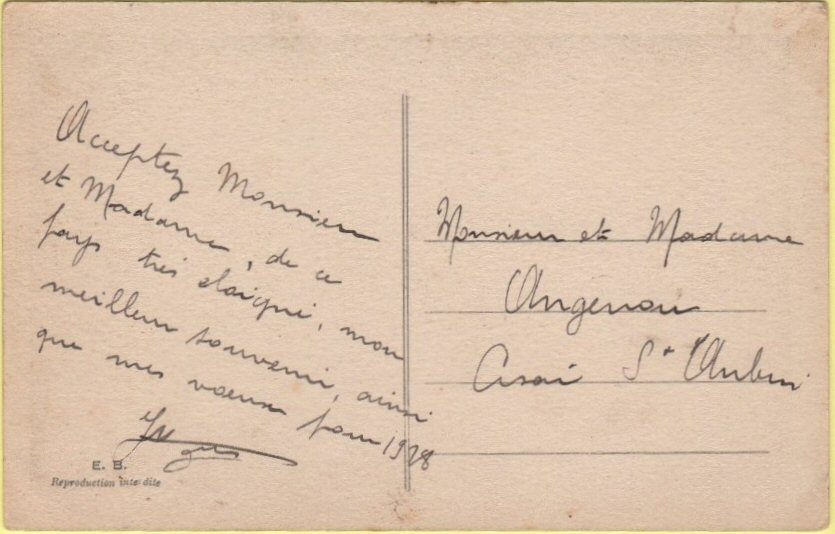 Acceptez Monsieur
et Madame, de ce
pays très éloigné, mon
meilleur souvenir, ainsi
que mes voeux pour 1928
E. B.
Reproduction interdite
Monsieur et Madame
Angenou
St Aubin